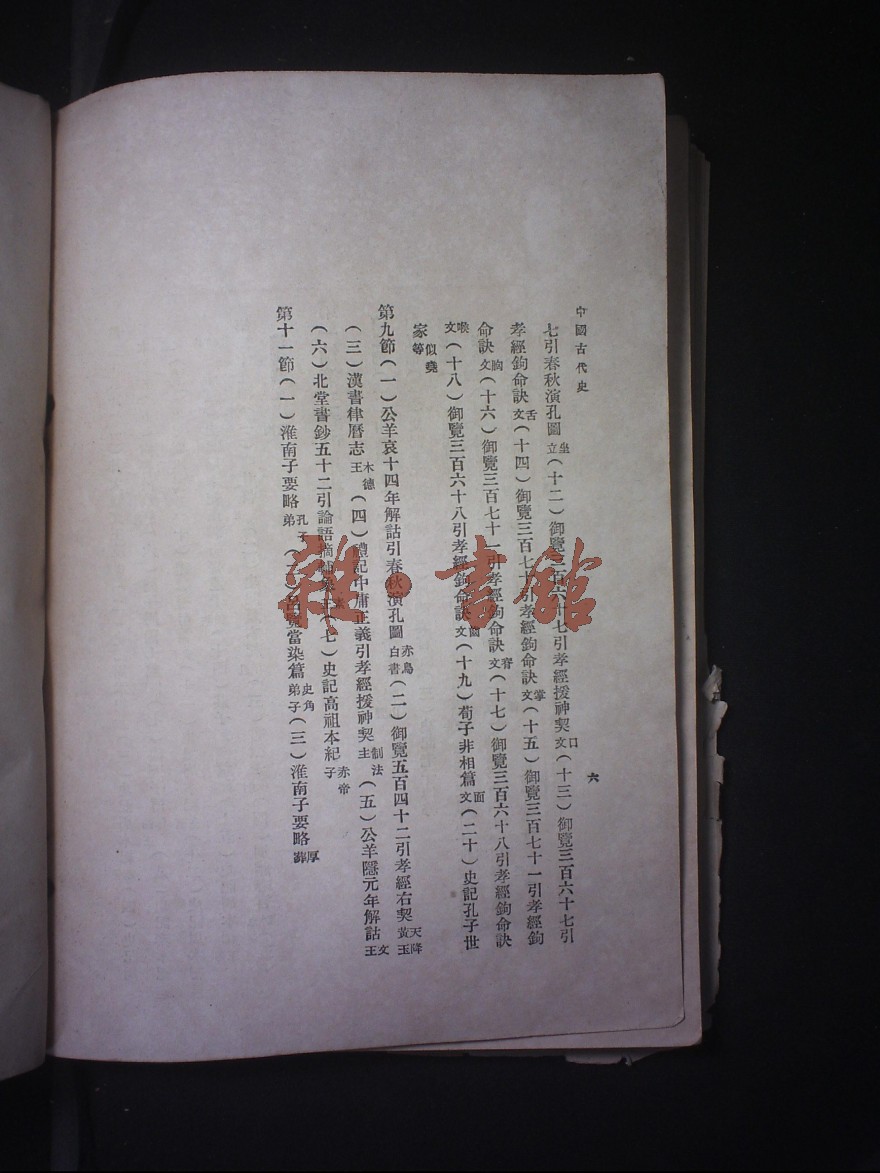 中國古代史
六
七引春秋演孔圖坐立（十二）御覽三百六十七引孝經援神契口文（十三）御覽三百六十七引
孝經鉤命訣舌文（十四）御覽三百七十引孝經鉤命訣掌文（十五）御覽三百七十一引孝經鉤
命訣胸文（十六）御覽三百七十一引孝經鉤命訣脊文（十七）御覽三百六十八引孝經鉤命訣
喉文（十八）御覽三百六十八引孝經鉤命訣齒文（十九）荀子非相篇面文（二十）史記孔子世
家似堯等
第九節（一）公羊哀十四年解詁引春秋演孔圖赤鳥白書（二）御覽五百四十二引孝經右契天降黃玉
（三）漢書律曆志木德王（四）禮記中庸正義引孝經援神契制法主（五）公羊隱元年解詁文王
（六）北堂書鈔五十二引論語摘輔象素王（七）史記高祖本紀赤帝子
第十一節（一）淮南子要略孔子弟（二）呂覽當染篇史角弟子（三）淮南子要略厚葬
雜·書館